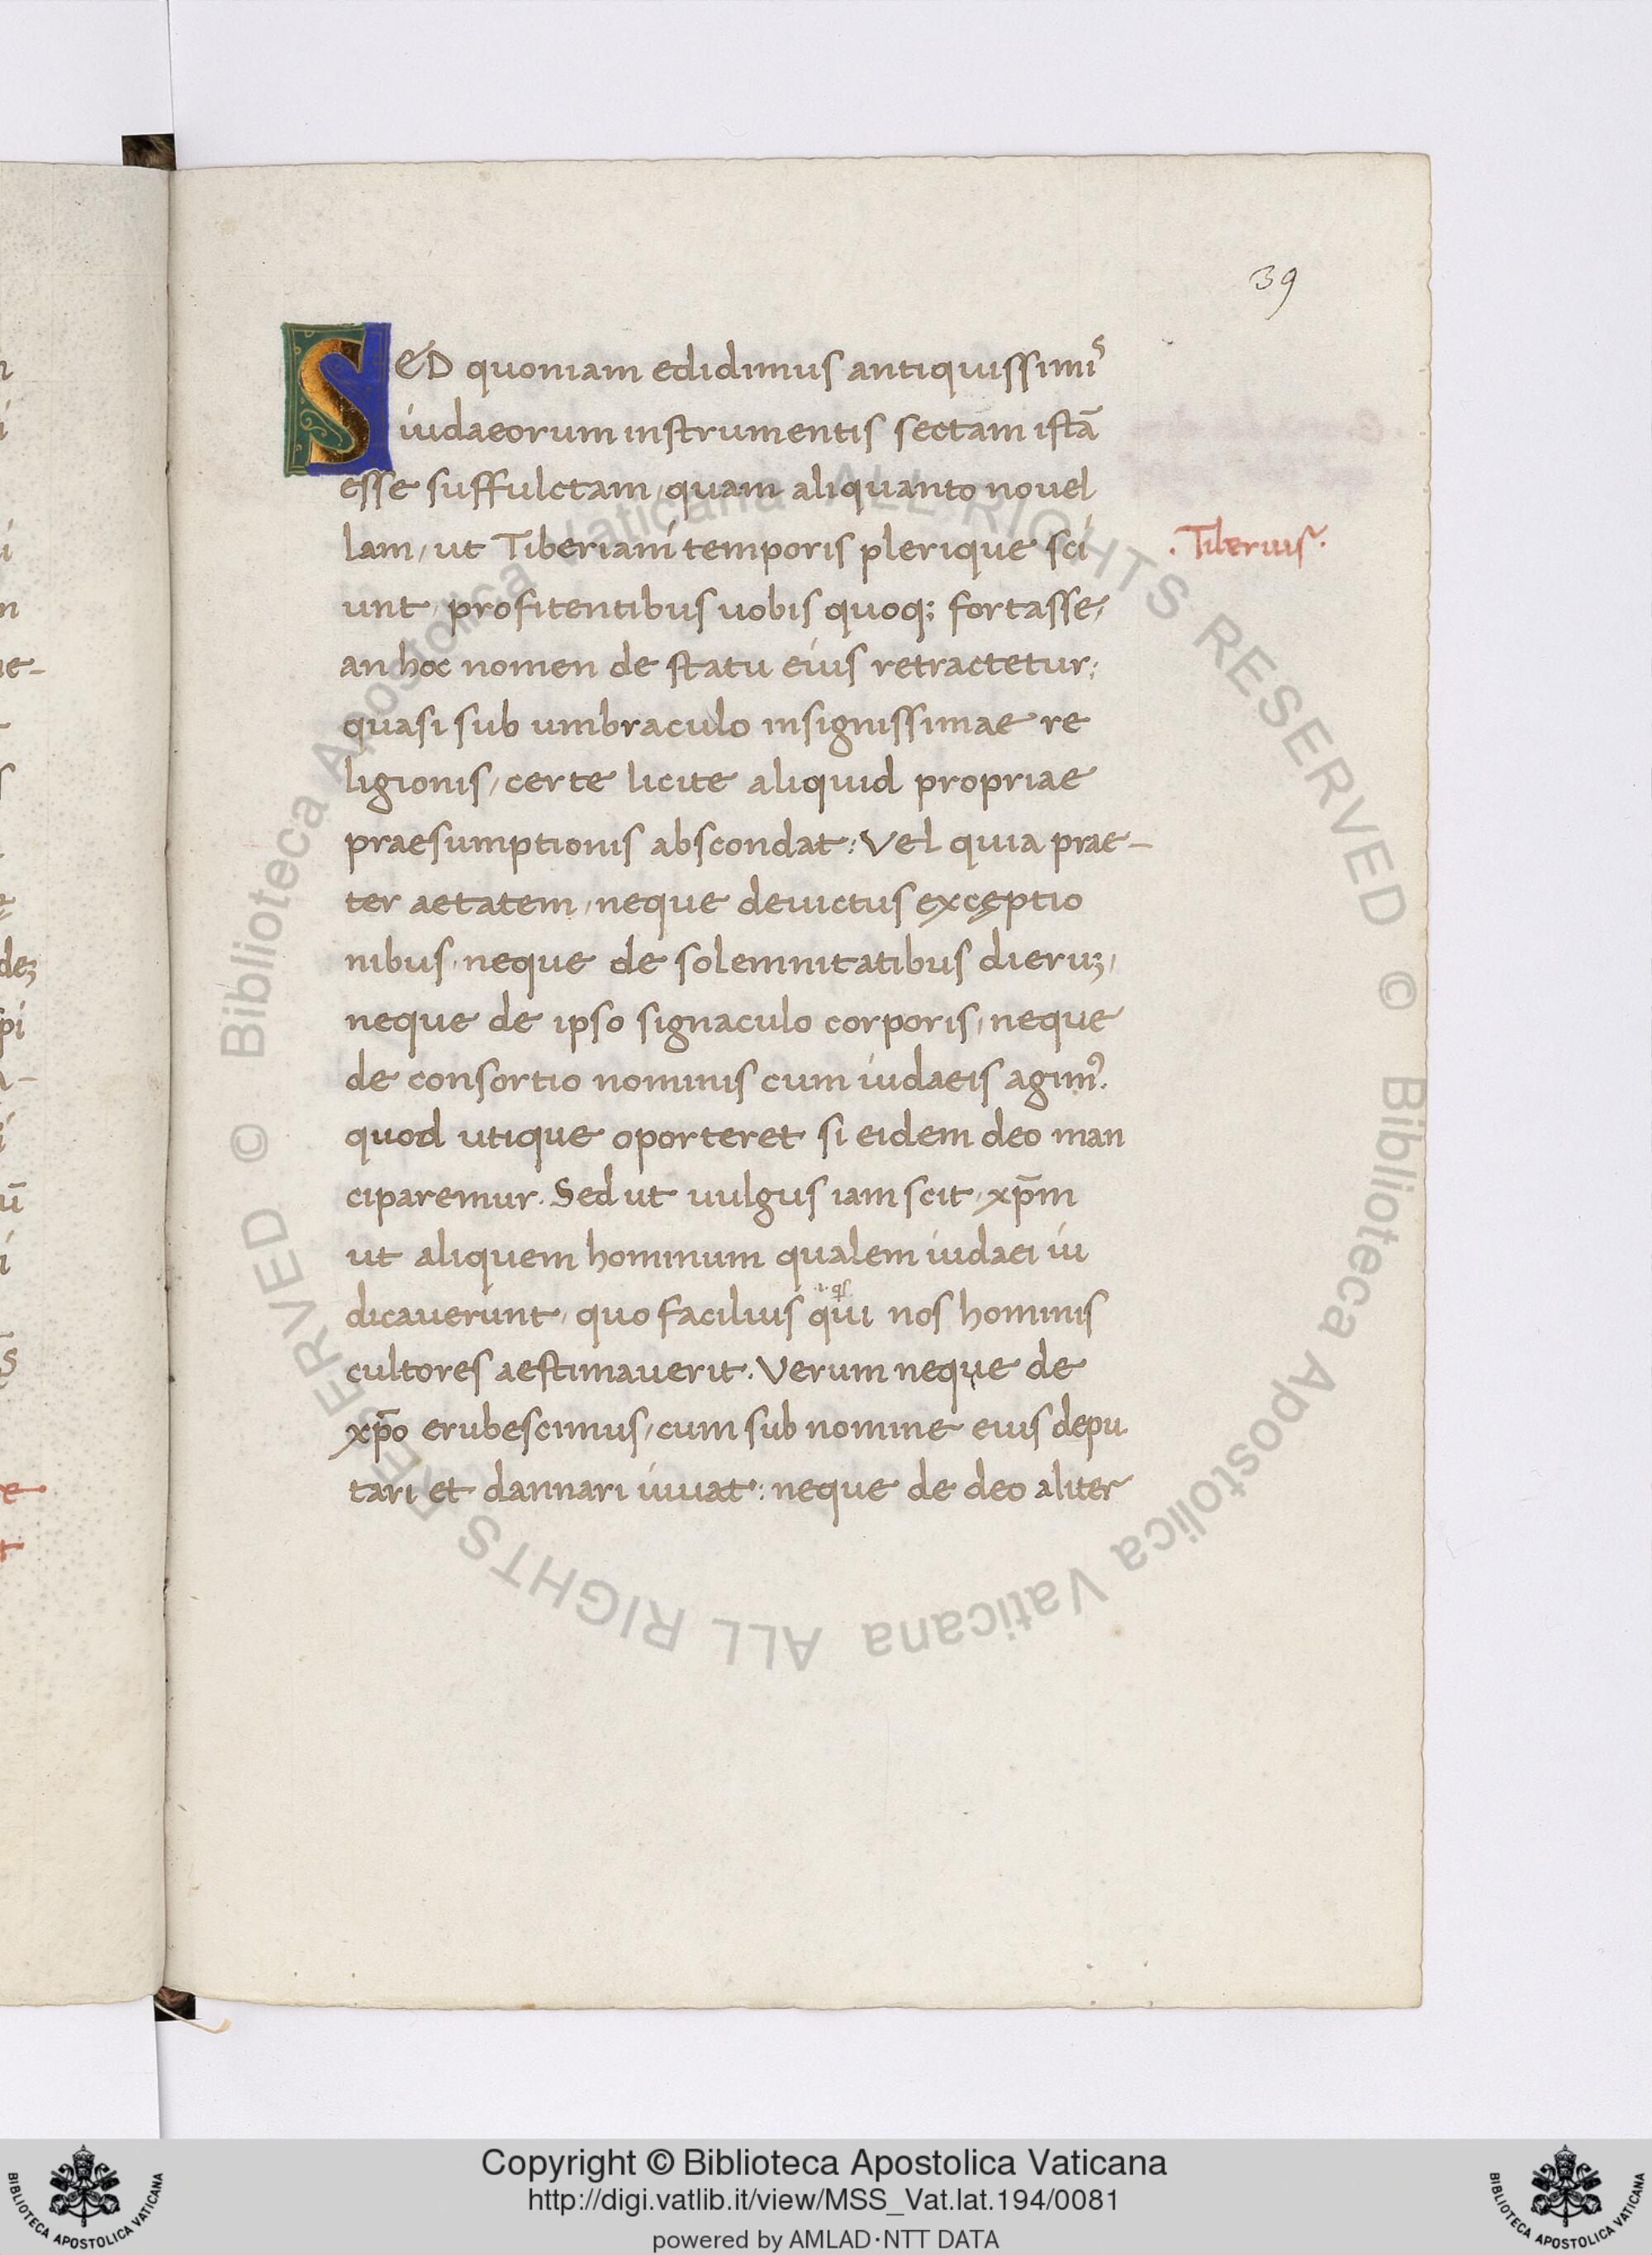 39
SED quoniam edidimus antiquissimis
iudaeorum instrumentis sectam istā
esse suffulctam, quam aliquanto nouel
lam, ut Tiberiani temporis plerique sci
.Tiberius.
unt, profitentibus uobis quoq; fortasse,
an hoc nomen de statu eius retractetur;
quasi sub umbraculo insignissimae re
ligionis, certe licite aliquid propriae
praesumptionis abscondat: Vel quia prae-
ter aetatem, neque deuictus excęptio
nibus, neque de solemnitatibus dieruꝫ,
neque de ipso signaculo corporis, neque
de consortio nominis cum iudaeis agimꝰ.
quod utique oporteret si eidem deo man
ciparemur. Sed ut uulgus iam scit, xp̄m
ut aliquem hominum qualem iudaei iu
dicauerunt, quo facilius qui nos hominis
cultores aestimauerit. Verum neque de
xp̄o erubescimus, cum sub nomine eius depu
tari et dannari iuuat: neque de deo aliter
Copyright © Biblioteca Apostolica Vaticana
http://digi.vatlib.it/view/MSS_Vat.lat.194/0081
powered by AMLAD·NTT DATA
BIBLIOTECA APOSTOLICA VATICANA
BIBLIOTECA APOSTOLICA VATICANA
© Biblioteca Apostolica Vaticana ALL RIGHTS RESERVED © Biblioteca Apostolica Vaticana ALL RIGHTS RESERVED